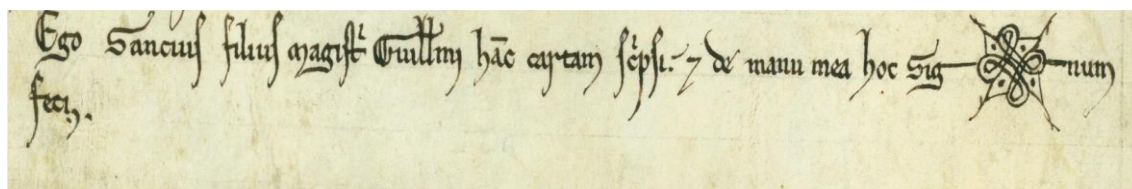 Ego Sancius filius magistͥ Guiłłmi hāc cartam scͥpsi. ⁊ de manu mea hoc Sig num
feci.